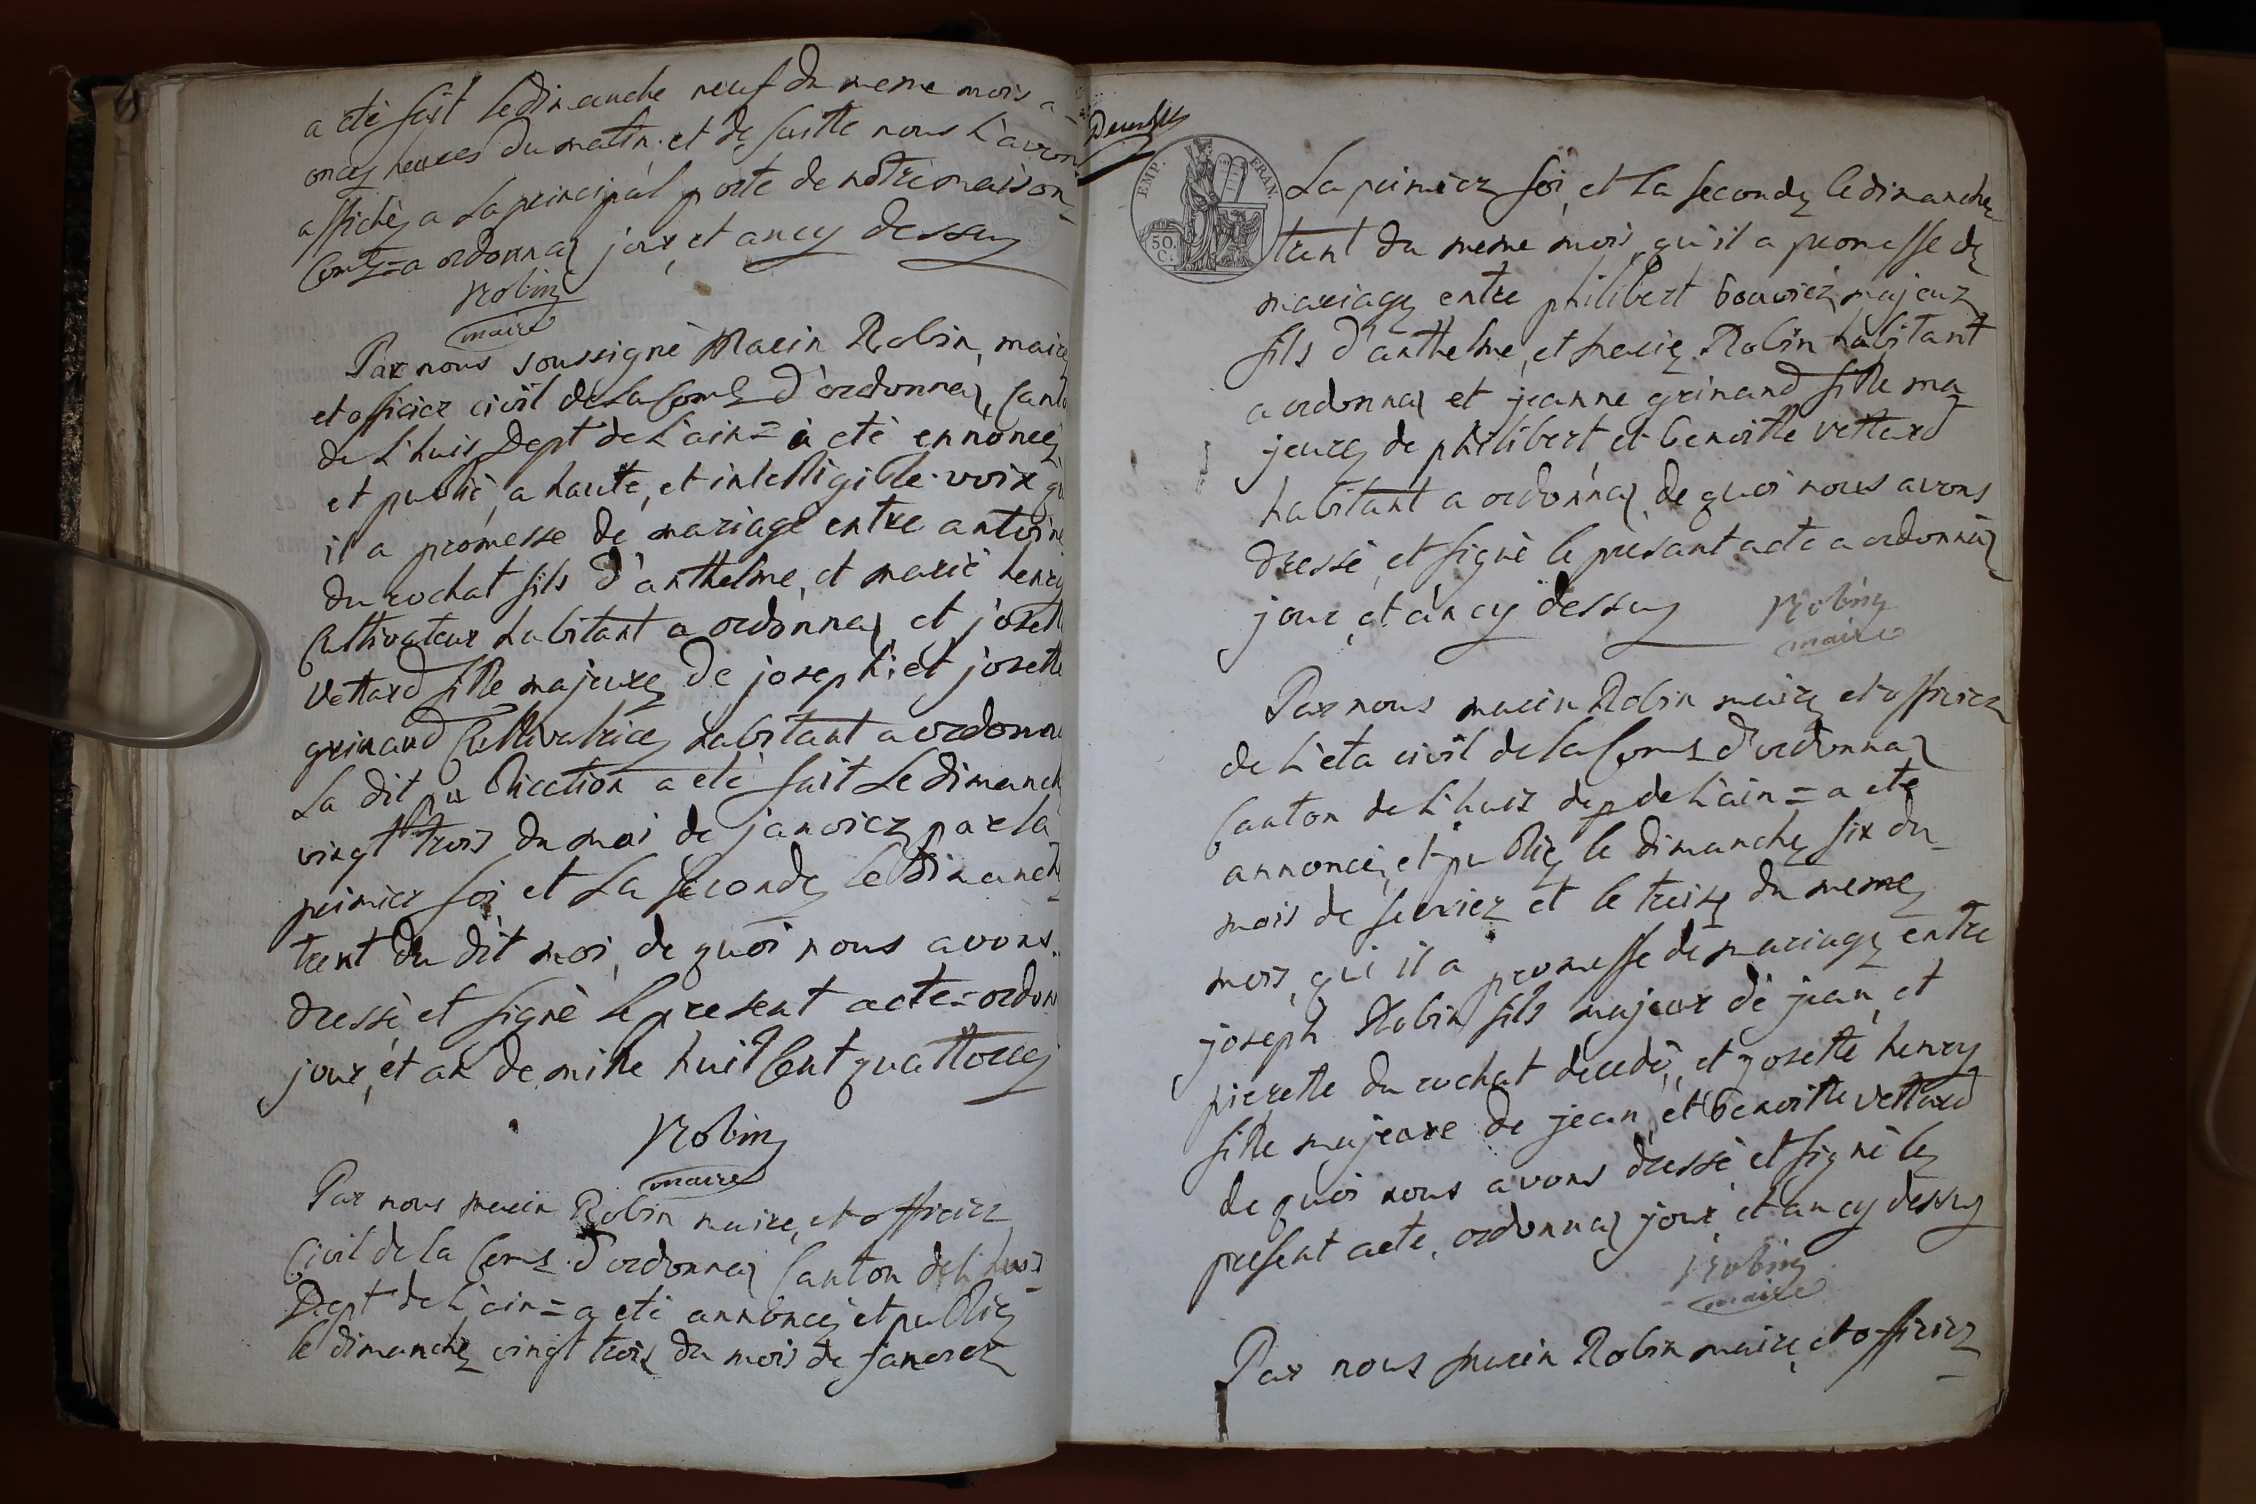 a eté fait le dimanche neuf du meme mois a
oncy heures du matin et de suitte nous l'avon
affichéz a la principal porte de notre maison
Comᵉ = a ordonnaz jour et ancy dessuy
Robin
maire
Par nous soussigné marin Robin, maire
et officier civil de la Comᵉ d'ordonnaz, Canto
de L'huis Dept de L'ain = a eté ennoncéz
et publié, a haute, et intelligible voix qu
il a promesse de mariage entre antoine
du rochat fils d'anthelme, et marie henry
Cultivateur habitant a ordonnaz et josett
Vettard fille majeure de joseph et josette
grinand Cultivatrice habitant a ordonna
La dit publication a eté fait le dimanch
vingt trois du moi de janvier par la
primier foi et la seconde le dimanch
trent du dit moi, de quoi nous avons
dressé et signé le present acte = ordon
jour, et an de mille huit Cent quattorcy
Robin
maire
Par nous marin Robin maire, et officier
Civil de la Comᵉ d'ordonnaz Canton de L'huis
Dept de L'ain = a eté annoncéz et publiéz
le dimanche vingt trois du mois de janvier
EMP. FRAN.
50. C.
La primier foi, et la seconde le dimanche
trant du meme mois, qu'il a promesse de
mariage entre philibert bouvier majeur
fils d'anthelme, et marie Robin habitant
a ordonnaz et jeanne grinand fille ma
jeure de philibert et benoitte vettard
habitant a ordonnaz de quoi nous avons
dressé, et signé le présant acte a ordonnaz
jour, et ancy dessuy
Robin
maire
Par nous marin Robin maire et officier
de L'éta civil de la Comᵉ d'ordonnaz
Canton de L'huis dep de L'ain = a eté
annoncéz, et publiéz le dimanche six du
mois de fevrier et le treize du meme
mois, qui il a promesse de mariage entre
joseph Robin fils majeur de jean, et
pierette du rochat decedé, et josette henry
fille majeure de jean, et benoitte vettard
de quoi nous avons dressé et signé le
present acte, ordonnaz jour, et ancy dessuy
Robin
maire
Par nous marin Robin maire, et officier